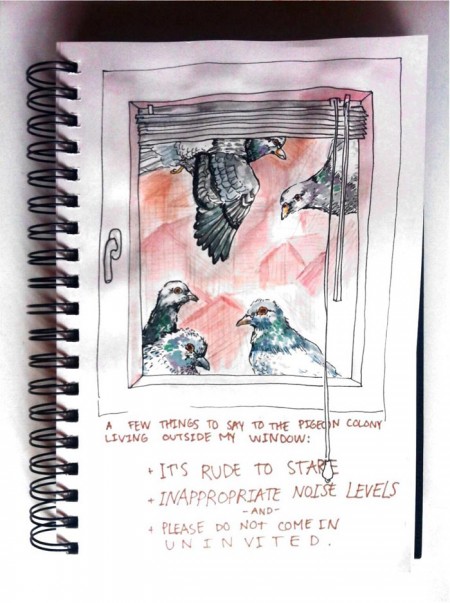 A FEW THINGS TO SAY TO THE PIGEON COLONY
LIVING OUTSIDE MY WINDOW:
+ IT'S RUDE TO STARE
+ INAPPROPRIATE NOISE LEVELS
-AND-
+ PLEASE DO NOT COME IN
UNINVITED.